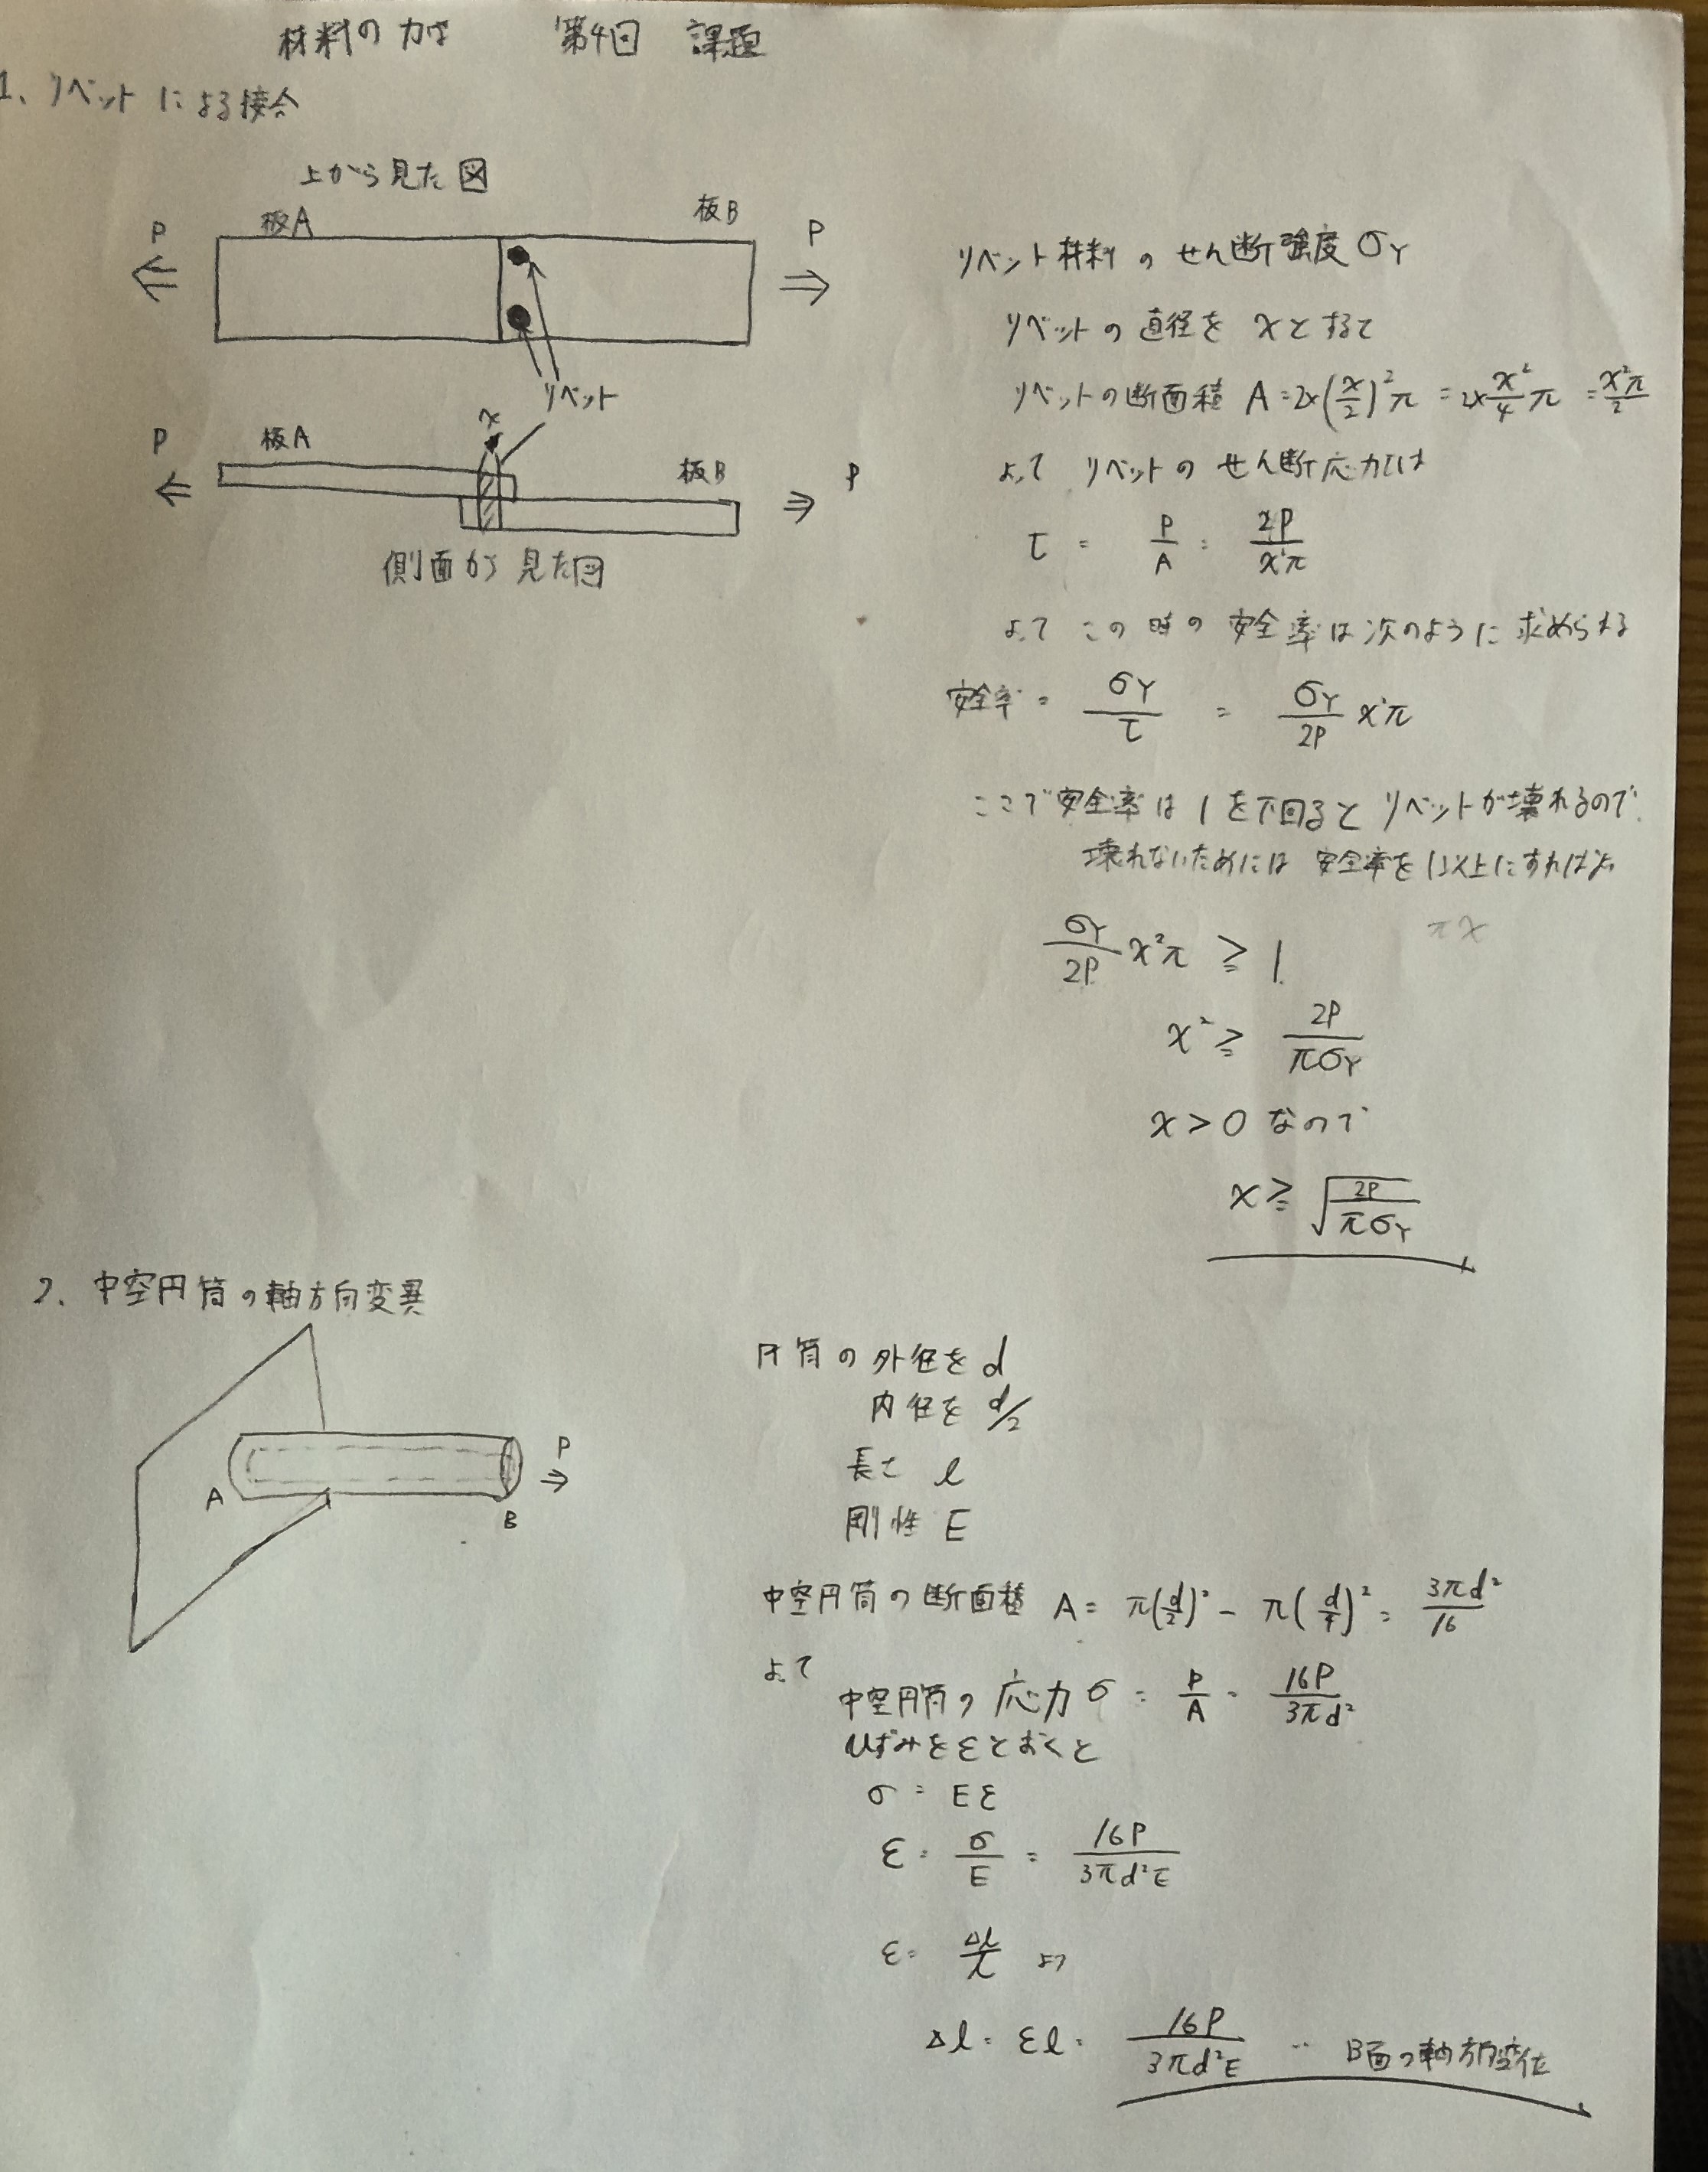 材料の力学 第4回 課題
1、リベットによる接合
上から見た図
板A 板B
P P
リベット
x
P 板A 板B P
側面から見た図
リベット材料のせん断強度σY
リベットの直径をxとすると
リベットの断面積 A=2×(x/2)²π =2×x²/4 π =x²π/2
よって リベットのせん断応力τは
τ = P/A = 2P/x²π
よって この時の安全率は次のように求められる
安全率 = σY/τ = σY/2P x²π
ここで安全率は1を下回るとリベットが壊れるので
壊れないためには 安全率を1以上にすればよい
πx
σY/2P x²π ≧ 1
x² ≧ 2P/πσY
x>0 なので
x ≧ √(2P/πσY)
2、中空円筒の軸方向変異
A B P
円筒の外径をd
内径をd/2
長さ l
剛性 E
中空円筒の断面積 A = π(d/2)² - π(d/4)² = 3πd²/16
よって
中空円筒の応力σ = P/A = 16P/3πd²
ひずみをεとおくと
σ = Eε
ε = σ/E = 16P/3πd²E
ε = Δl/l より
Δl = εl = 16P/3πd²E … B面の軸方向変位